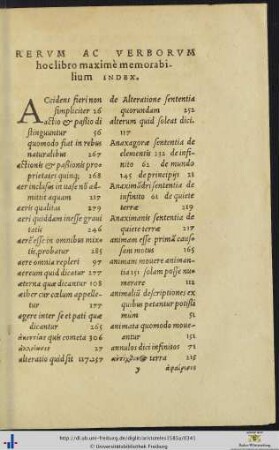 RERVM AC VERBORVM
hoc libro maximè memorabi-
lium INDEX.
ACcidens fieri non
simpliciter 26
actio & passio di
stinguuntur 56
quomodo fiat in rebus
naturalibus 267
actionis & passionis pro-
prietates quinq; 268
aer inclusus in uase nõ ad-
mittat aquam 217
aeris qualitas 279
aeri quiddam inesse graui
tatis 246
aerẽ esse in omnibus mix-
tis, probatur 285
aere omnia repleri 97
aereum quid dicatur 277
aeterna quæ dicantur 108
aiher cur cœlum appelle-
tur 177
agere inter se et pati quæ
dicantur 265
quis cometa 306
alteratio quid sit 117.257
de Alteratione sententia
quorundam 252
alterum quid soleat dici.
117
Anaxagoræ sententia de
elementis 252 de infi-
nito 62 de mundo
145 de principijs 21
Anaximãdri sententia de
infinito 62 de quiete
terræ 219
Anaximenis sententia de
quiete terræ 217
animam esse primã causs-
sam motus 265
animam mouere animan-
tia 151 solam posse nu-
merare 112
animaliũ descriptiones ex
quibus petantur possi
mum 51
animata quomodo moue-
antur 151
annulos dici infinitos 72
terra 215
y
http://dl.ub.uni-freiburg.de/diglit/aristoteles1585a/0341
© Universitätsbibliothek Freiburg